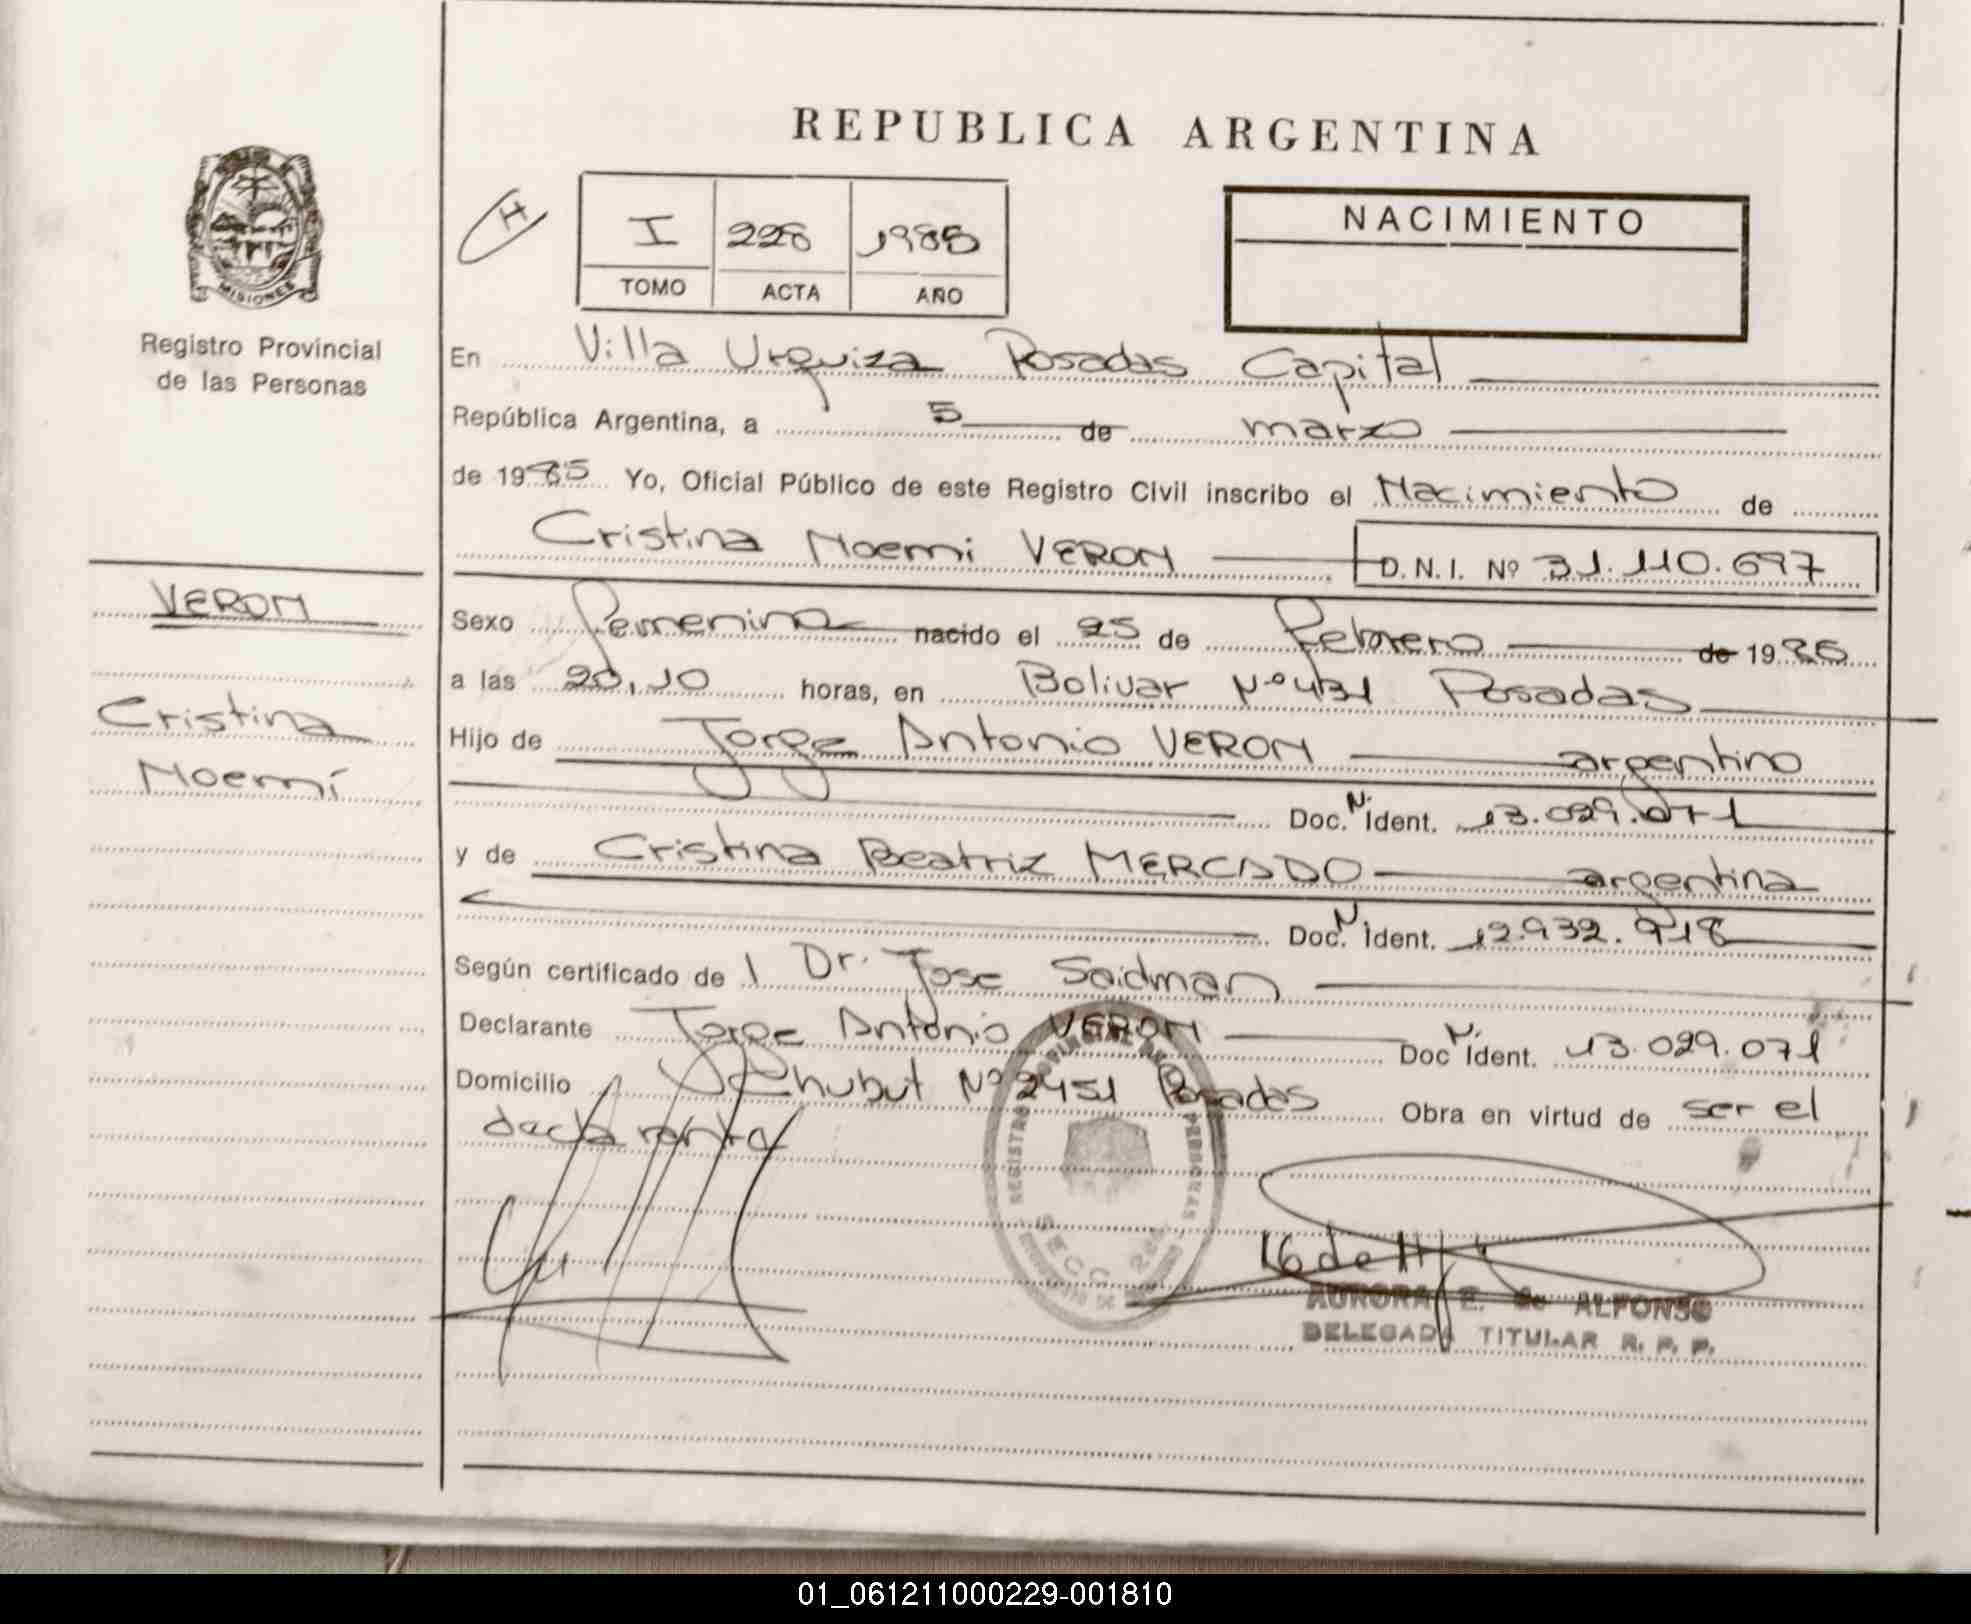 REPUBLICA ARGENTINA
MISIONES
Registro Provincial
de las Personas
H
I 228 1985
TOMO ACTA AÑO
NACIMIENTO
En Villa Urquiza Posadas Capital
República Argentina, a 5 de marzo
de 1985 Yo, Oficial Público de este Registro Civil inscribo el Nacimiento de
Cristina Noemi VERON D.N.I. Nº 31.110.697
VERON
Cristina
Noemí
Sexo femenino nacido el 25 de febrero de 1985
a las 20,10 horas, en Bolivar Nº 431 Posadas
Hijo de Jorge Antonio VERON argentino
Doc. N. Ident. 13.029.071
y de Cristina Beatriz MERCADO argentina
Doc. N. Ident. 12.932.918
Según certificado de l Dr. Jose Saidman
Declarante Jorge Antonio VERON Doc N. Ident. 13.029.071
Domicilio Chubut Nº 2451 Posadas Obra en virtud de ser el
declarante
16 de
AURORA E. de ALFONSO
DELEGADA TITULAR R. P. P.
01_061211000229-001810